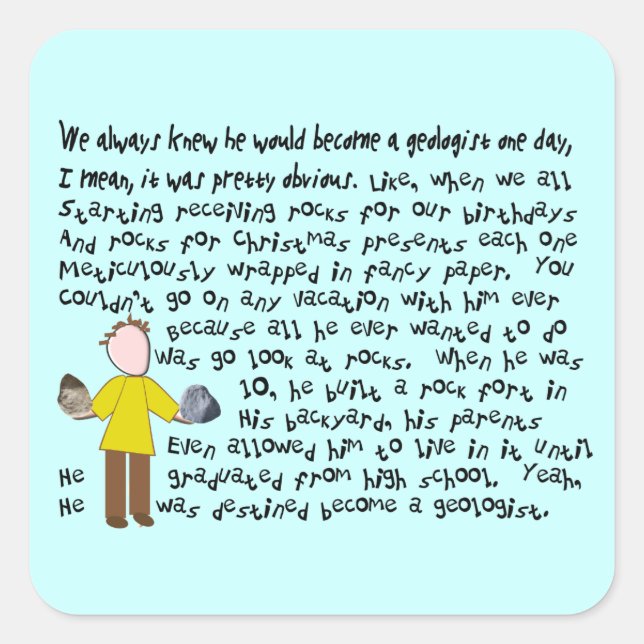 We always knew he would become a geologist one day,
I mean, it was pretty obvious. Like, when we all
Starting receiving rocks for our birthdays
And rocks for Christmas presents each one
Meticulously wrapped in fancy paper. You
Couldn't go on any vacation with him ever
Because all he ever wanted to do
Was go look at rocks. When he was
10, he built a rock fort in
His backyard, his parents
Even allowed him to live in it until
He graduated from high school. Yeah,
He was destined become a geologist.